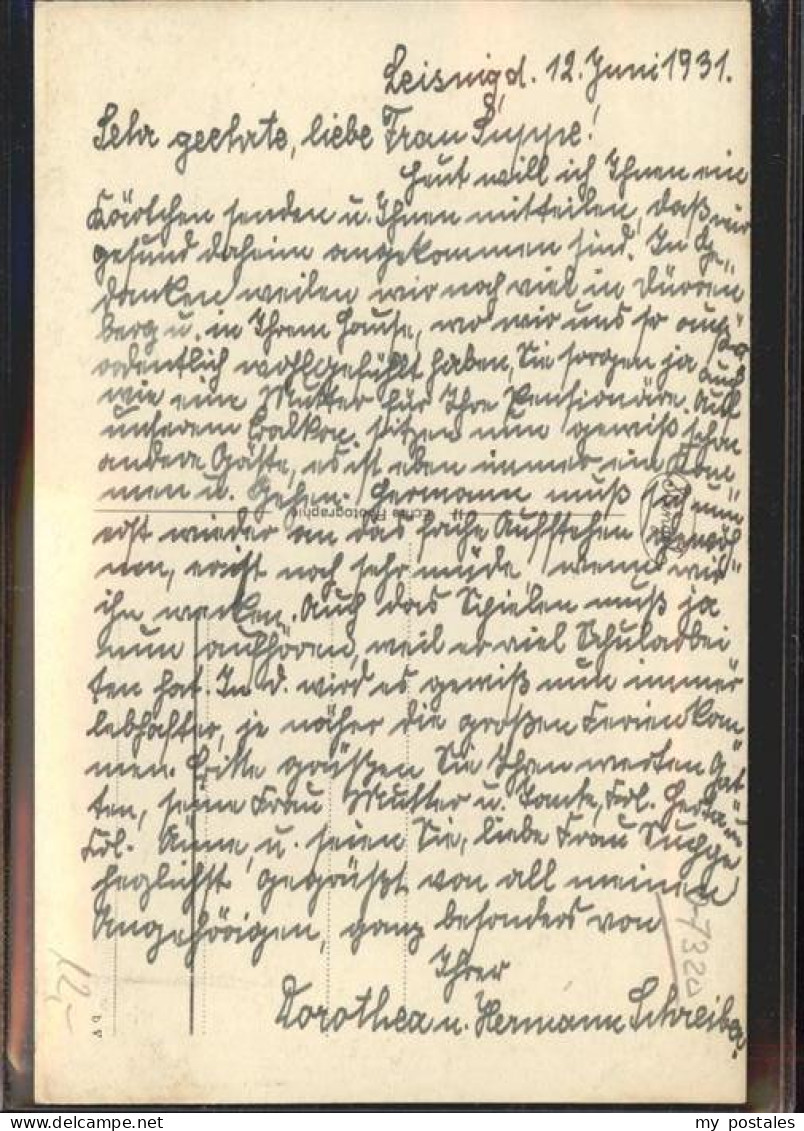 Leisnig, d. 12. Juni 1931.
Sehr geehrte, liebe Frau Suppe!
Heut will ich Ihnen ein
Kärtchen senden u. Ihnen mitteilen, daß wir
gesund daheim angekommen sind. In Ge-
danken weilen wir noch viel in Dürren
berg u. in Ihrem Hause, wo wir uns so außer
ordentlich wohlgefühlt haben, Sie sorgen ja auch
wie eine Mutter für Ihre Pensionäre. Auf
unserem Balkon sitzen nun gewiß schon
andere Gäste, es ist eben immer ein Kom-
men u. Gehen. Hermann muß sich nun
erst wieder an das frühe Aufstehen gewöh-
nen, er ist noch sehr müde, wenn wir
ihn wecken. Auch das Spielen muß ja
nun aufhören, weil er viel Schularbei
ten hat. In D. wird es gewiß nun immer
lebhafter, je näher die großen Ferien kom
men. Bitte grüßen Sie Ihren werten Gat-
ten, seine Frau Mutter u. Tante, Frl. Herta u.
Frl. Änne, u. seien Sie, liebe Frau
herzlichst gegrüßt von all meinen
Angehörigen, ganz besonders von
Ihrer
Dorothea u. Hermann Schreiber.
Echte Photographie
D-7320
12,-
my postales